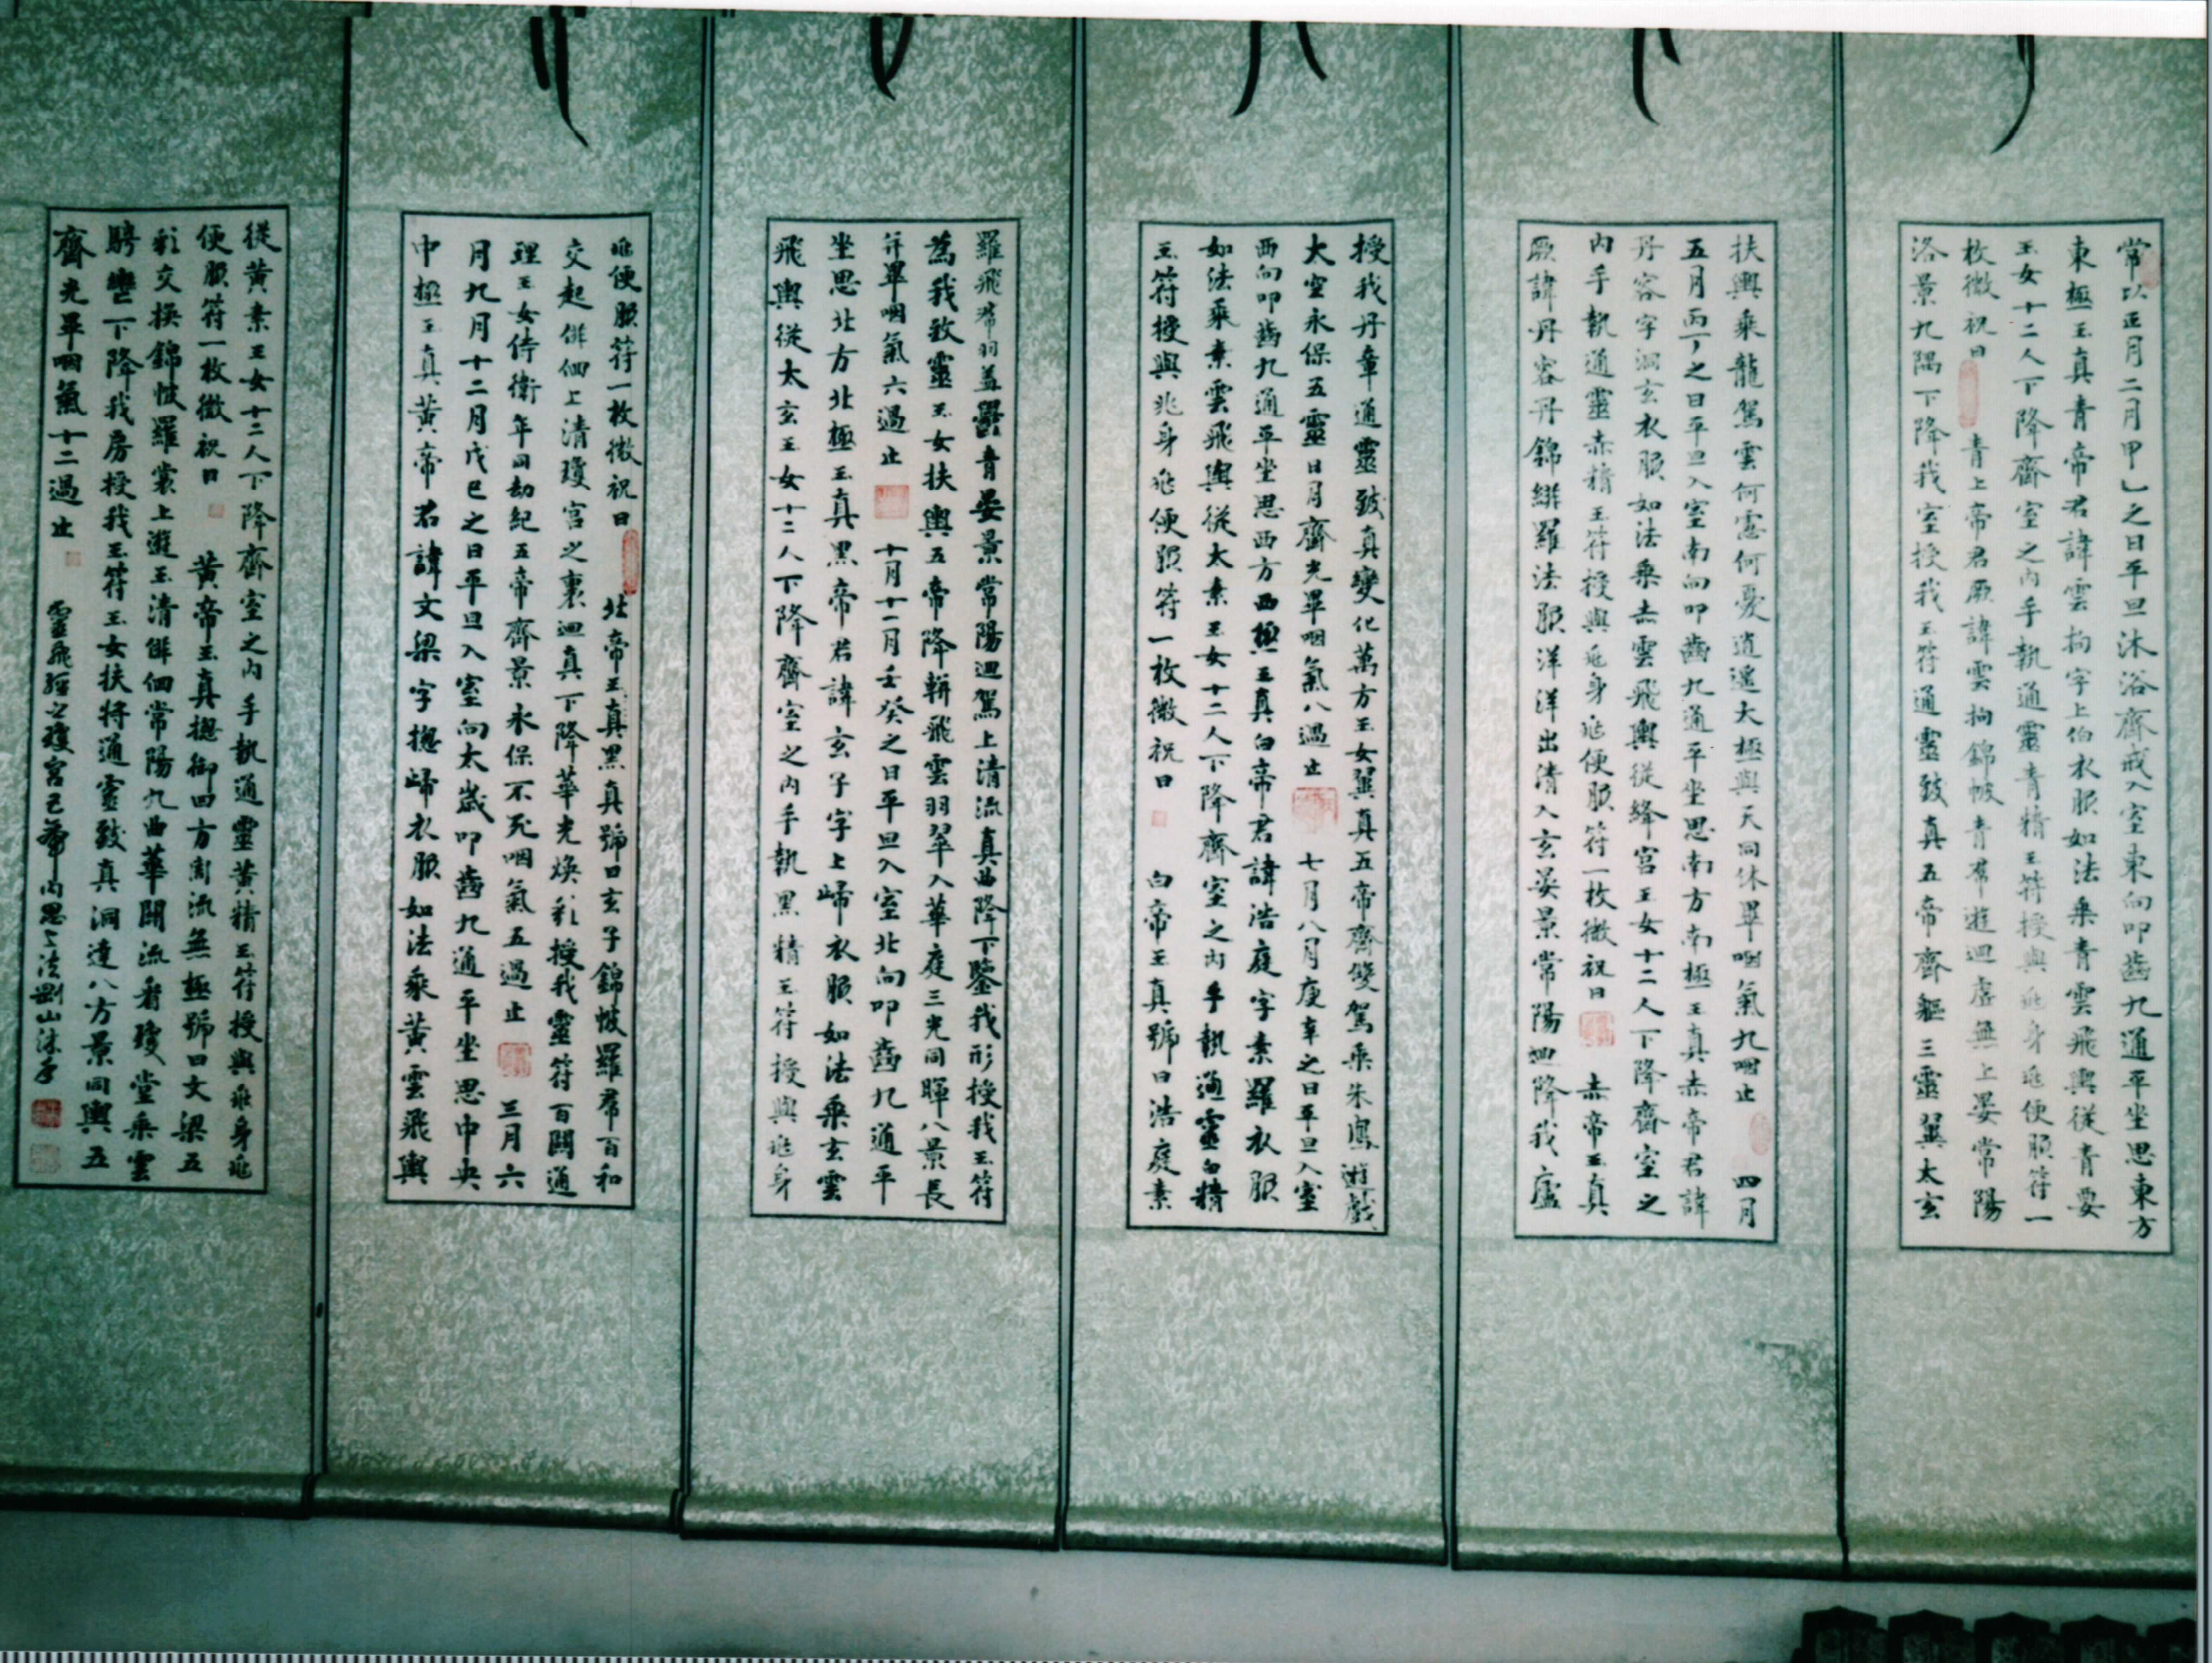 常以正月二月甲乙之日平旦沐浴齋戒入室東向叩齒九通平坐思東方
東極玉真青帝君諱雲拘字上伯衣服如法乘青雲飛輿從青要
玉女十二人下降齋室之內手執通靈青精玉符授與兆身兆便服符一
枚微祝曰 青上帝君厥諱雲拘錦帔青帬遊迴虛無上晏常陽
洛景九隅下降我室授我玉符通靈致真五帝齊軀三靈翼太玄
扶輿乘龍駕雲何慮何憂逍遙太極與天同休畢咽氣九咽止 四月
五月丙丁之日平旦入室南向叩齒九通平坐思南方南極玉真赤帝君諱
丹容字洞玄衣服如法乘赤雲飛輿從絳宮玉女十二人下降齋室之
內手執通靈赤精玉符授與兆身兆便服符一枚微祝曰 赤帝玉真
厥諱丹容丹錦緋羅法服洋洋出清入玄晏景常陽迴降我廬
授我丹章通靈致真變化萬方玉女翼真五帝齊雙駕乘朱鳳遊戲
太空永保五靈日月齊光畢咽氣八過止 七月八月庚辛之日平旦入室
西向叩齒九通平坐思西方西極玉真白帝君諱浩庭字素羅衣服
如法乘素雲飛輿從太素玉女十二人下降齋室之內手執通靈白精
玉符授與兆身兆便服符一枚微祝曰 白帝玉真號曰浩庭素
羅飛帬羽蓋鬱青晏景常陽迴駕上清流真曲降下鑒我形授我玉符
為我致靈玉女扶輿五帝降軿飛雲羽翠入華庭三光同暉八景長
并畢咽氣六過止 十月十一月壬癸之日平旦入室北向叩齒九通平
坐思北方北極玉真黑帝君諱玄子字上歸衣服如法乘玄雲
飛輿從太玄玉女十二人下降齋室之內手執黑精玉符授與兆身
兆便服符一枚微祝曰 北帝玉真黑真號曰玄子錦帔羅帬百和
交起俳佪上清瓊宮之裏迴真下降華光煥彩授我靈符百關通
理玉女侍衛年同劫紀五帝齊景永保不死咽氣五過止 三月六
月九月十二月戊己之日平旦入室向太歲叩齒九通平坐思中央
中極玉真黃帝君諱文梁字揔歸衣服如法乘黃雲飛輿
從黃素玉女十二人下降齋室之內手執通靈黃精玉符授與兆身兆
便服符一枚微祝曰 黃帝玉真揔御四方周流無極號曰文梁五
彩交換錦帔羅裳上遊玉清俳佪常陽九曲華關流看瓊堂乘雲
騁轡下降我房授我玉符玉女扶將通靈致真洞達八方景同輿五
齊光畢咽氣十二過止 靈飛經之瓊宮五帝內思上法